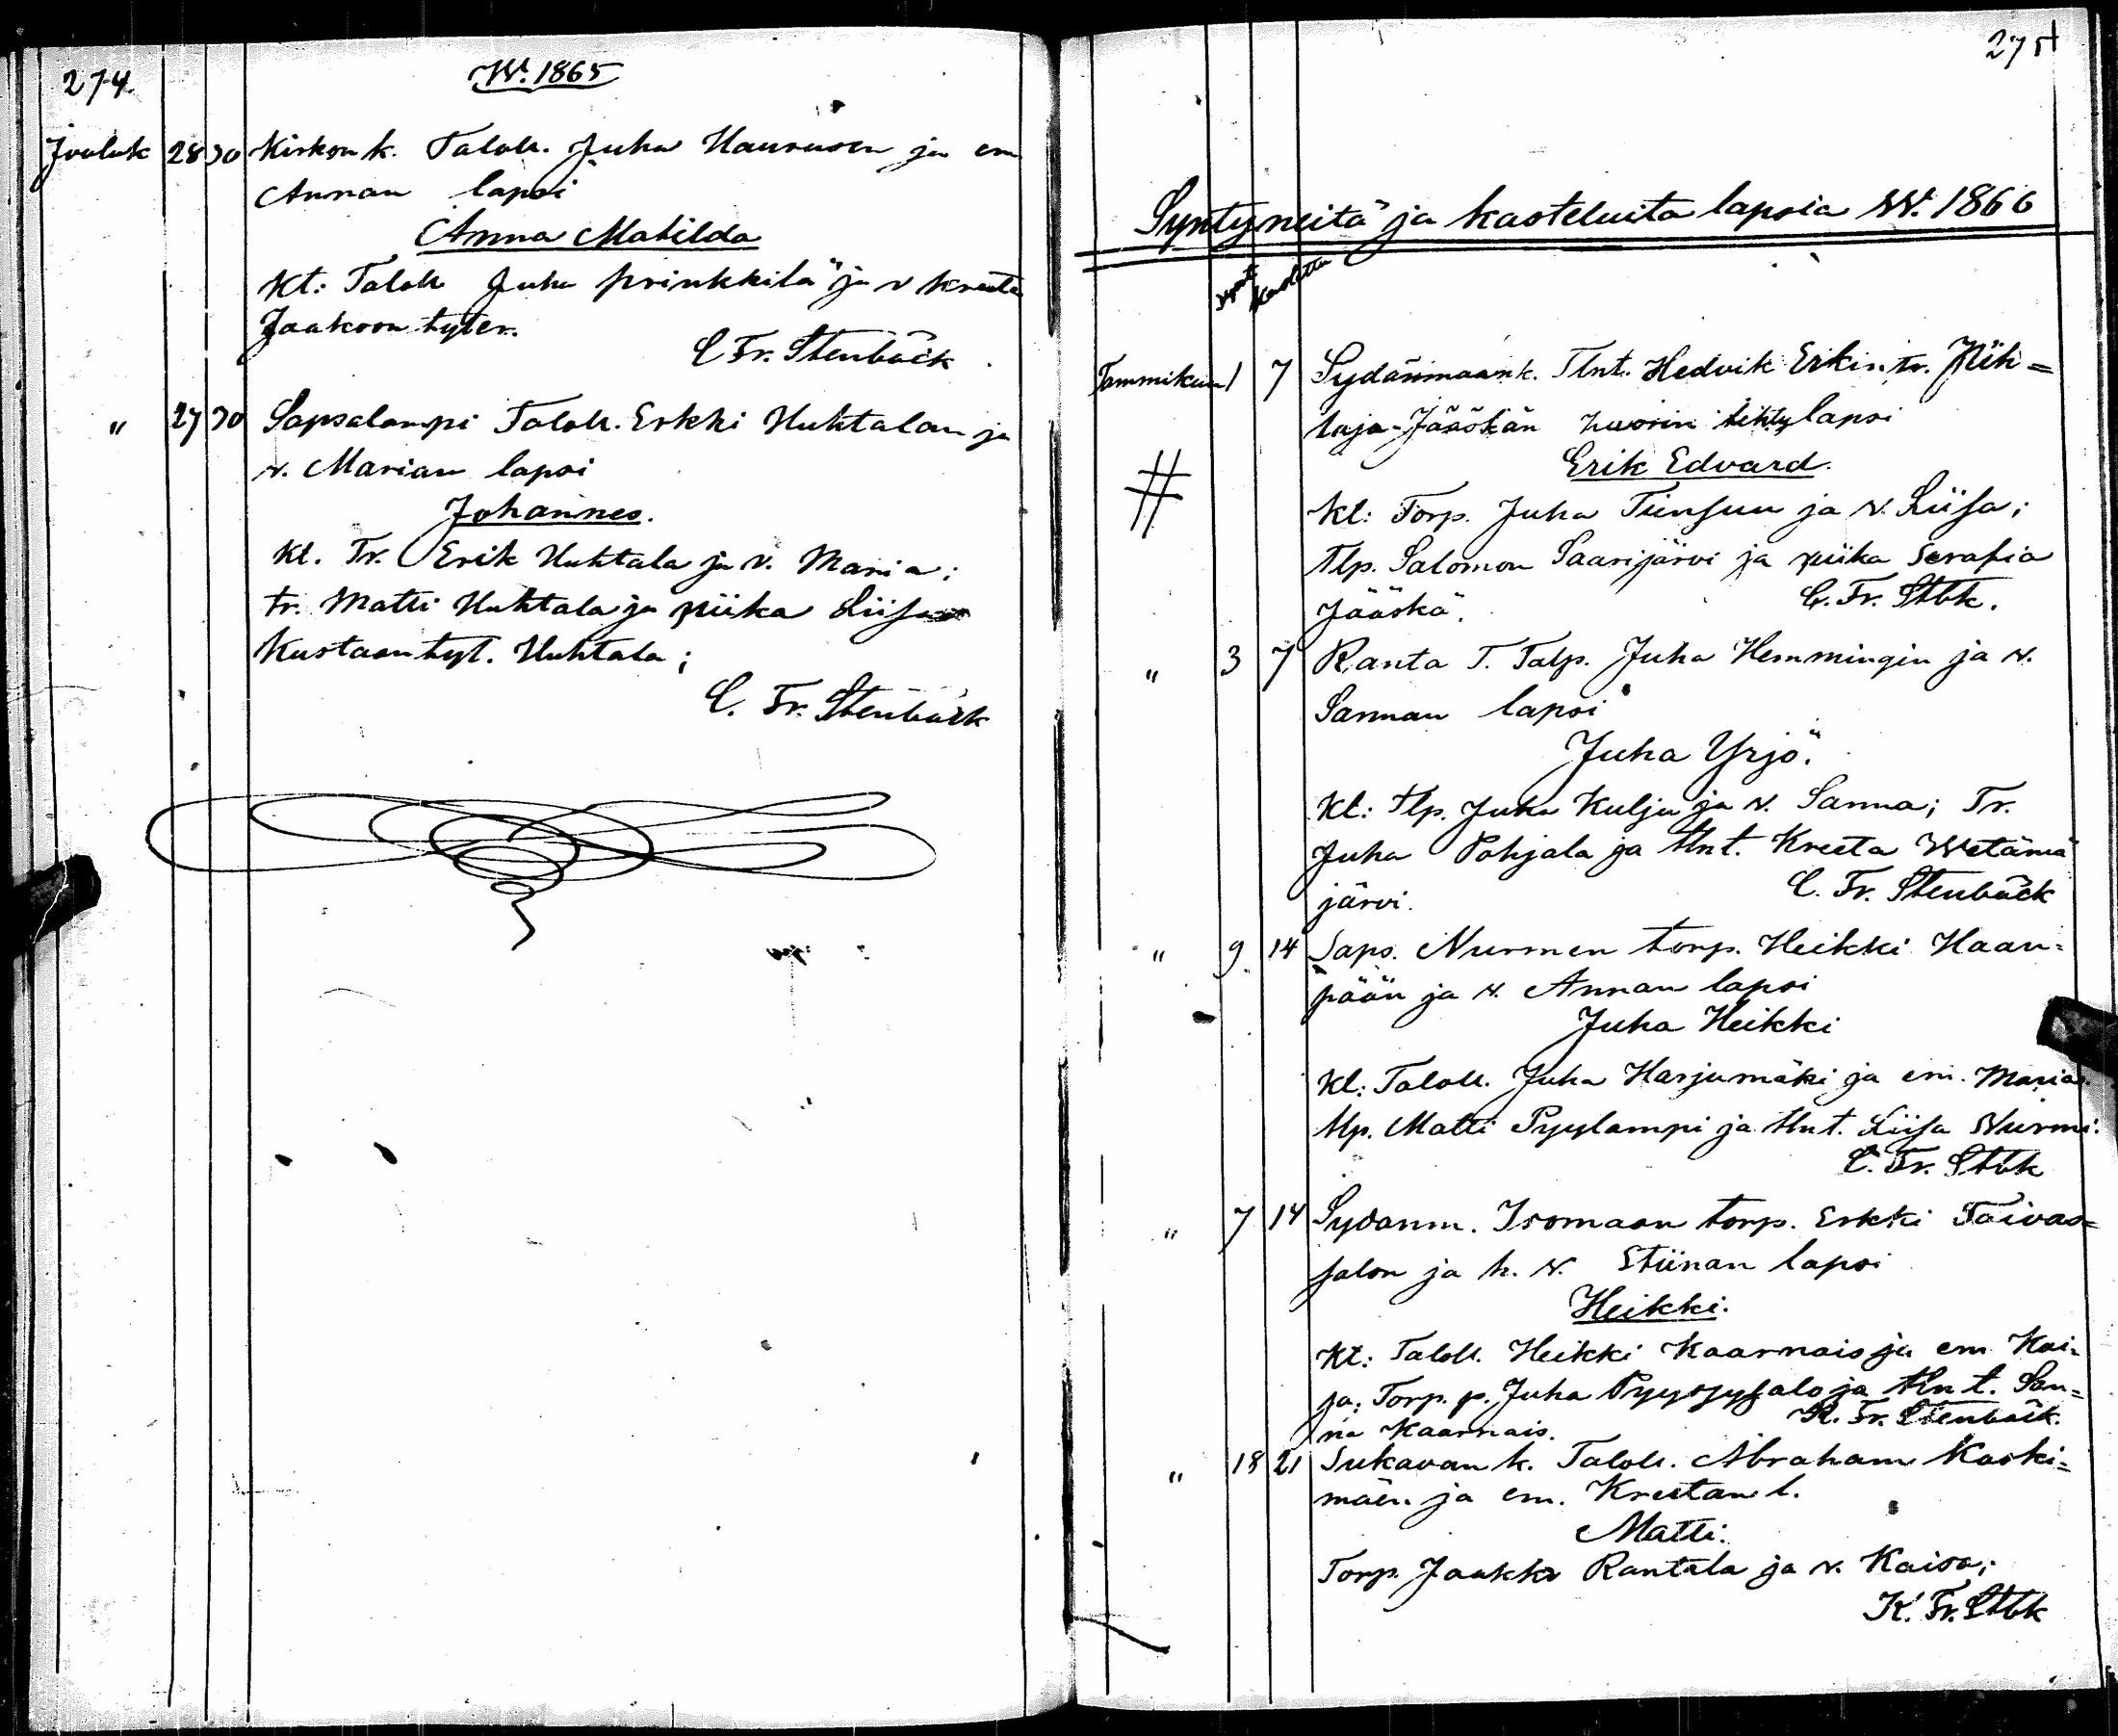 274.
W. 1865
Jouluk 28 30 Kirkon k. Taloll. Juha Haurusen ja em
Annan lapsi
Anna Matilda
Kt: Taloll Juha prinkkilä ja v kreeta
Jaakoon tyter.
C Fr. Stenbäck
" 27 30 Sapsalampi Taloll. Erkki Huhtalan ja
v. Marian lapsi
Johannes.
Kt. Tr. Erik Huhtala ja v. Maria;
tr. Matti Huhtala ja piika Liisa
Kustaan tyt. Huhtala;
C. Fr. Stenbäck
275
Syntyneitä ja kasteluita lapsia W. 1866
synt. Kastettu
Tammikuu 1 7 Sydänmaan k. Tlnt. Hedvik Erkin tr.
laja-Jääskän huorin tehty lapsi
Erik Edvard.
Kt: Torp. Juha Tiensuu ja v. Liisa;
Tlp. Salomon Saarijärvi ja piika Serafia
Jääskä.
C. Fr. Stbk.
" 3 7 Ranta T. Talp. Juha Hemmingin ja v.
Sannan lapsi
Juha Yrjö.
Kt: tlp. Juha Kulju ja v. Sanna; Tr.
Juha Pohjala ja tlnt. Kreeta Wetämä
järvi.
C. Fr. Stenbäck
" 9 14 Saps. Nurmen torp. Heikki Haan=
pään ja v. Annan lapsi
Juha Heikki
Kt: Taloll. Juha Harjumäki ja em. Maria.
tlp. Matti Pyylampi ja tlnt. Liisa Nurmi.
C. Fr. Stbk
" 7 14 Sydänm. Isomaan torp. Erkki Taivas=
salon ja h. v. Stiinan lapsi
Heikki.
Kt: Taloll. Heikki Kaarnais ja em Kai=
sa; Torp. p. Juha Pyysysalo ja tlnt. San=
na Kaarnais.
K. Fr. Stenbäck.
" 18 21 Sukavan k. Taloll. Abraham Koski=
mäen ja em. Kreetan l.
Matti.
Torp. Jaakko Rantala ja v. Kaisa;
K. Fr. Stbk